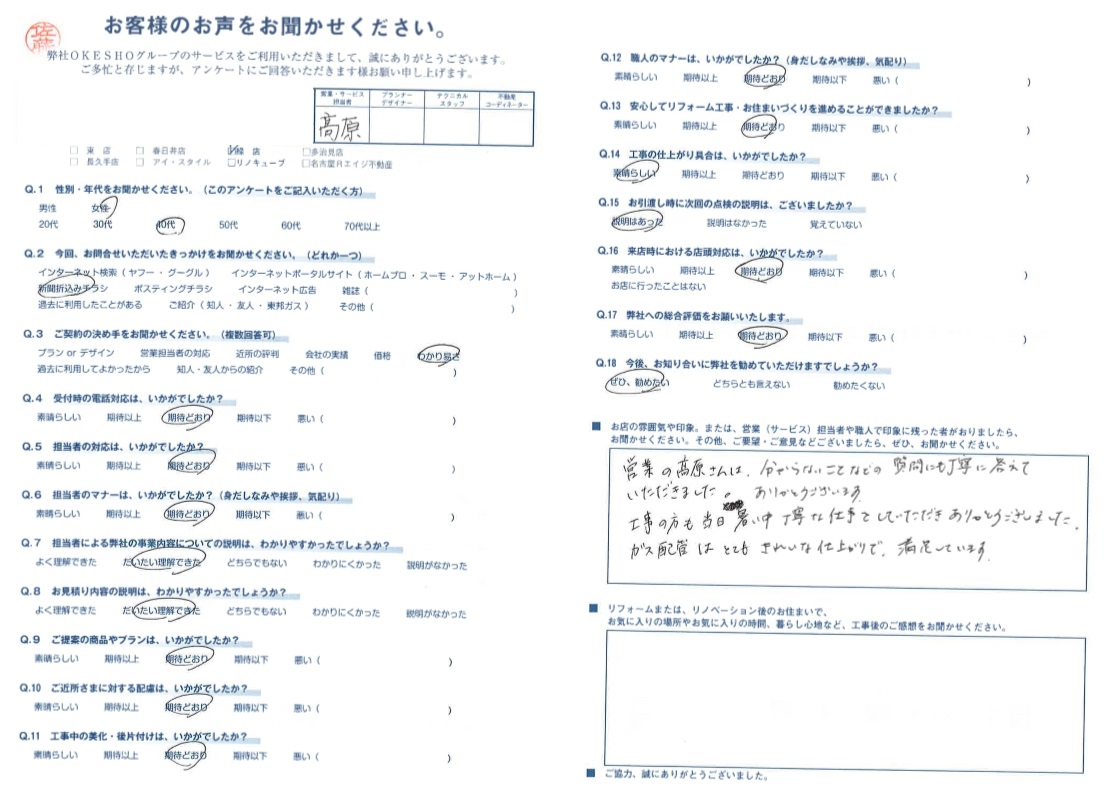 佐藤
お客様のお声をお聞かせください。
弊社OKESHOグループのサービスをご利用いただきまして、誠にありがとうございます。
ご多忙と存じますが、アンケートにご回答いただきます様お願い申し上げます。
営業・サービス担当者 プランナーデザイナー テクニカルスタッフ 不動産コーディネーター
高原
□ 東 店 □ 春日井店 ☑緑 店 □多治見店
□ 長久手店 □ アイ・スタイル □リノキューブ □名古屋Rエイジ不動産
Q.1 性別・年代をお聞かせください。（このアンケートをご記入いただく方）
男性 女性
20代 30代 40代 50代 60代 70代以上
Q.2 今回、お問合せいただいたきっかけをお聞かせください。（どれか一つ）
インターネット検索（ ヤフー ・ グーグル ） インターネットポータルサイト（ ホームプロ ・ スーモ ・ アットホーム ）
新聞折込みチラシ ポスティングチラシ インターネット広告 雑誌（ ）
過去に利用したことがある ご紹介（ 知人 ・ 友人 ・ 東邦ガス ） その他（ ）
Q.3 ご契約の決め手をお聞かせください。（複数回答可）
プラン or デザイン 営業担当者の対応 近所の評判 会社の実績 価格 わかり易さ
過去に利用してよかったから 知人・友人からの紹介 その他（ ）
Q.4 受付時の電話対応は、いかがでしたか？
素晴らしい 期待以上 期待どおり 期待以下 悪い（ ）
Q.5 担当者の対応は、いかがでしたか？
素晴らしい 期待以上 期待どおり 期待以下 悪い（ ）
Q.6 担当者のマナーは、いかがでしたか？（身だしなみや挨拶、気配り）
素晴らしい 期待以上 期待どおり 期待以下 悪い（ ）
Q.7 担当者による弊社の事業内容についての説明は、わかりやすかったでしょうか？
よく理解できた だいたい理解できた どちらでもない わかりにくかった 説明がなかった
Q.8 お見積り内容の説明は、わかりやすかったでしょうか？
よく理解できた だいたい理解できた どちらでもない わかりにくかった 説明がなかった
Q.9 ご提案の商品やプランは、いかがでしたか？
素晴らしい 期待以上 期待どおり 期待以下 悪い（ ）
Q.10 ご近所さまに対する配慮は、いかがでしたか？
素晴らしい 期待以上 期待どおり 期待以下 悪い（ ）
Q.11 工事中の美化・後片付けは、いかがでしたか？
素晴らしい 期待以上 期待どおり 期待以下 悪い（ ）
Q.12 職人のマナーは、いかがでしたか？（身だしなみや挨拶、気配り）
素晴らしい 期待以上 期待どおり 期待以下 悪い（ ）
Q.13 安心してリフォーム工事・お住まいづくりを進めることができましたか？
素晴らしい 期待以上 期待どおり 期待以下 悪い（ ）
Q.14 工事の仕上がり具合は、いかがでしたか？
素晴らしい 期待以上 期待どおり 期待以下 悪い（ ）
Q.15 お引渡し時に次回の点検の説明は、ございましたか？
説明はあった 説明はなかった 覚えていない
Q.16 来店時における店頭対応は、いかがでしたか？
素晴らしい 期待以上 期待どおり 期待以下 悪い（ ）
お店に行ったことはない
Q.17 弊社への総合評価をお願いいたします。
素晴らしい 期待以上 期待どおり 期待以下 悪い（ ）
Q.18 今後、お知り合いに弊社を勧めていただけますでしょうか？
ぜひ、勧めたい どちらとも言えない 勧めたくない
■ お店の雰囲気や印象。または、営業（サービス）担当者や職人で印象に残った者がおりましたら、
お聞かせください。その他、ご要望・ご意見などございましたら、ぜひ、お聞かせください。
営業の高原さんは、分からないことなどの質問にも丁寧に答えて
いただきました。 ありがとうございます
工事の方も当日 暑い中 丁寧な仕事をしていただきありがとうございました。
ガス配管はとてもきれいな仕上がりで、満足しています。
■ リフォームまたは、リノベーション後のお住まいで、
お気に入りの場所やお気に入りの時間、暮らし心地など、工事後のご感想をお聞かせください。
■ ご協力、誠にありがとうございました。